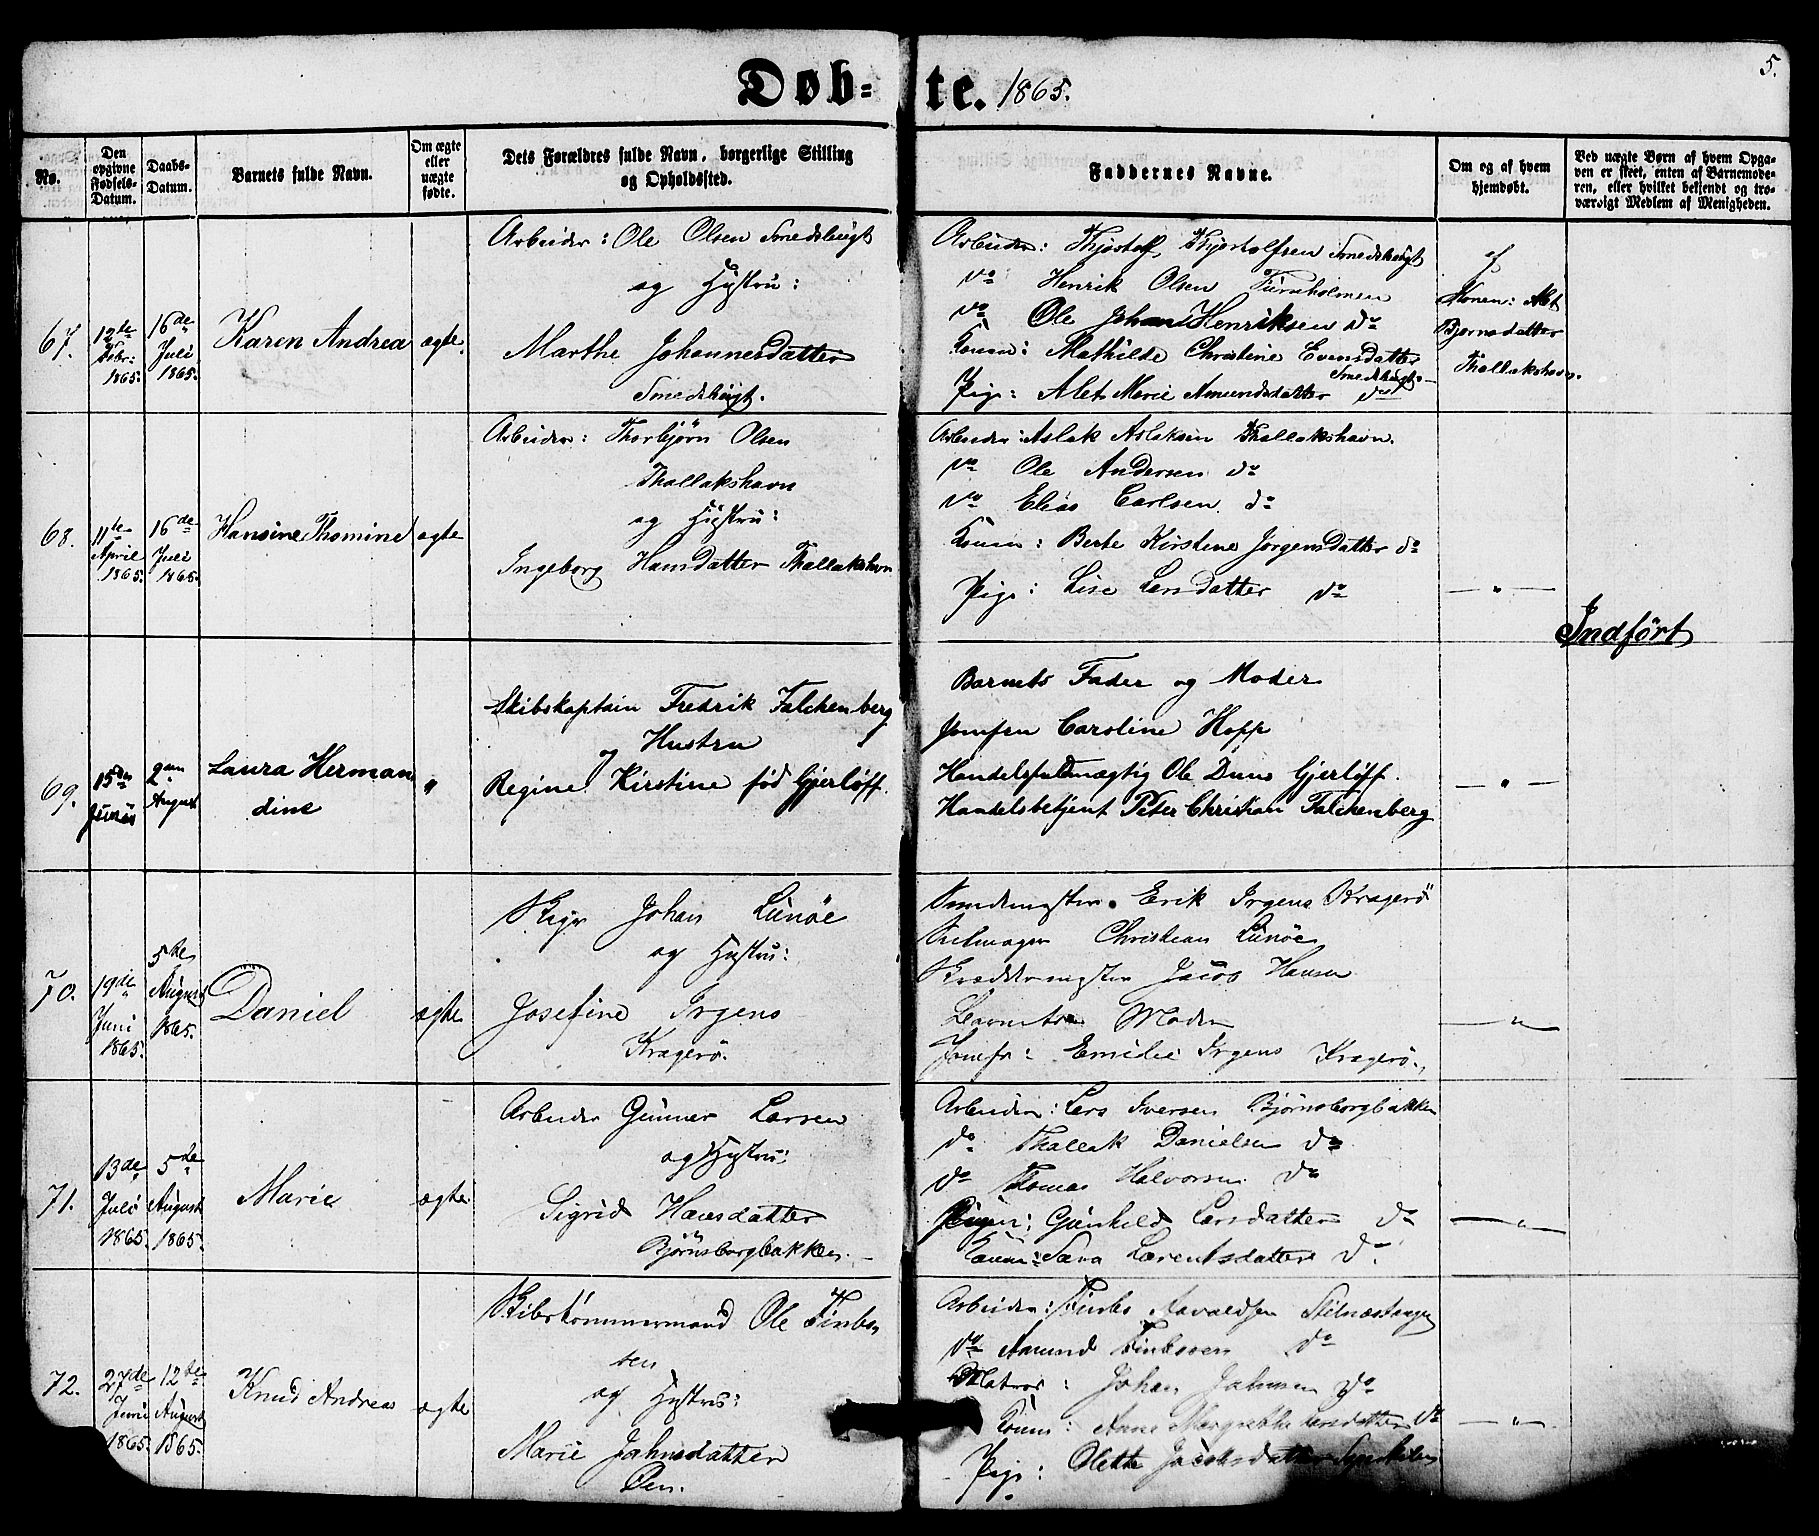 5.
Døb- te. 1865.
No.
Den opgivne Fødsels-Datum.
Daabs-Datum.
Barnets fulde Navn.
Om ægte eller uægte fødte.
Dets Forældres fulde Navn, borgerlige Stilling og Opholdssted.
Faddernes Navne.
Om og af hvem hjemdøbt.
Ved uægte Børn af hvem Opgaven er skeet, enten af Barnemoderen, eller hvilket bekjendt og troværdigt Medlem af Menigheden.
67.
12te Febr: 1865.
16de Juli 1865.
Karen Andrea
ægte.
Arbeider: Ole Olsen Smedsbugt
og Hustru:
Marthe Johannesdatter
Smedsbugt.
Arbeider: Thjostolf Thjostolfsen Smedsbugt
do Henrik Olsen Furuholmen
do Ole Johan Henriksen do
Konen: Mathilde Christine Evensdatter
Smedsbugt.
Pige: Alet Marie Amundsdatter do
af
Konen: Alet
Bjørnsdatter
Thallakshavn.
68.
11te April 1865.
16de Juli 1865.
Hansine Thomine
ægte
Arbeider: Thorbjørn Olsen
Thallakshavn
og Hustru:
Ingeborg Hansdatter Thallakshavn
Arbeider: Aslak Aslaksen Thallakshavn.
do Ole Andersen do
do Elias Carlsen do
Konen: Berte Kirstine Jørgensdatter do
Pige: Lise Larsdatter do
— " —
Indført
69.
15de Junii
2den August
Laura Herman
dine
"
Skibskaptain Fredrik Falckenberg
og Hustru
Regine Kirstine fød Gjerløff.
Barnets Fader og Moder
Jomfru Caroline Hopp
Handelsfuldmægtig Ole Duus Gjerløff.
Handelsbetjent Peter Christian Falckenberg
— " —
70.
19de Juni 1865.
5te August 1865.
Daniel
ægte
Johan Lunøe
og Hustru:
Josefine Irgens
Kragerö.
Erik Irgens Kragerö
Christian Lunøe
Jacob Hansen
Barnets Moder
Jomfr: Emilie Irgens Kragerö.
— " —
71.
13de Juli 1865.
5te August 1865.
Marie
ægte.
Arbeider Gunner Larsen
og Hustru:
Sigrid Hansdatter
Bjørnsborgbakken.
Arbeider: Lars Iversen Bjørnsborgbakken
do Thallak Danielsen do
do Thomas Halvorsen do
Pigen: Gunhild Larsdatter do
Konen: Sara Larentsdatter do
— " —
72.
27de Juni 1865.
12te August 1865.
Knud Andreas
ægte
Skibstømmermand Ole Finbo
sen
og Hustru:
Marie Jahnsdatter
Øen.
Arbeider: Finbo Aavaldsen Stilnæstangen
do Amund Finbosen do
Matros: Johan Jahnsen do
Konen: Anne Margrethe Larsdatter do
Pige: Olette Jacobsdatter
— " —